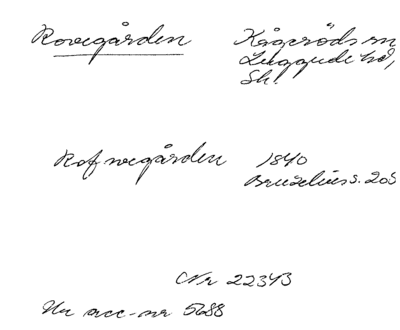 Rovegården Kågeröds sn
Luggude hd,
Sk.
Rofwegården 1840
Bruzelius s. 203
Nr 22343
Ur acc-nr 5688